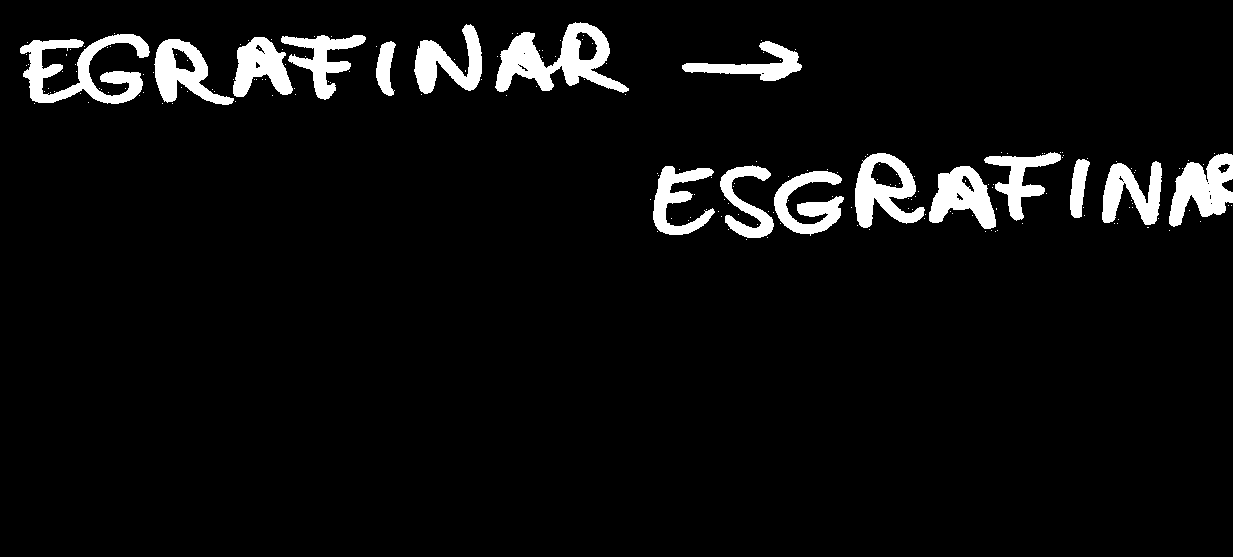 EGRAFINAR →
ESGRAFINAR